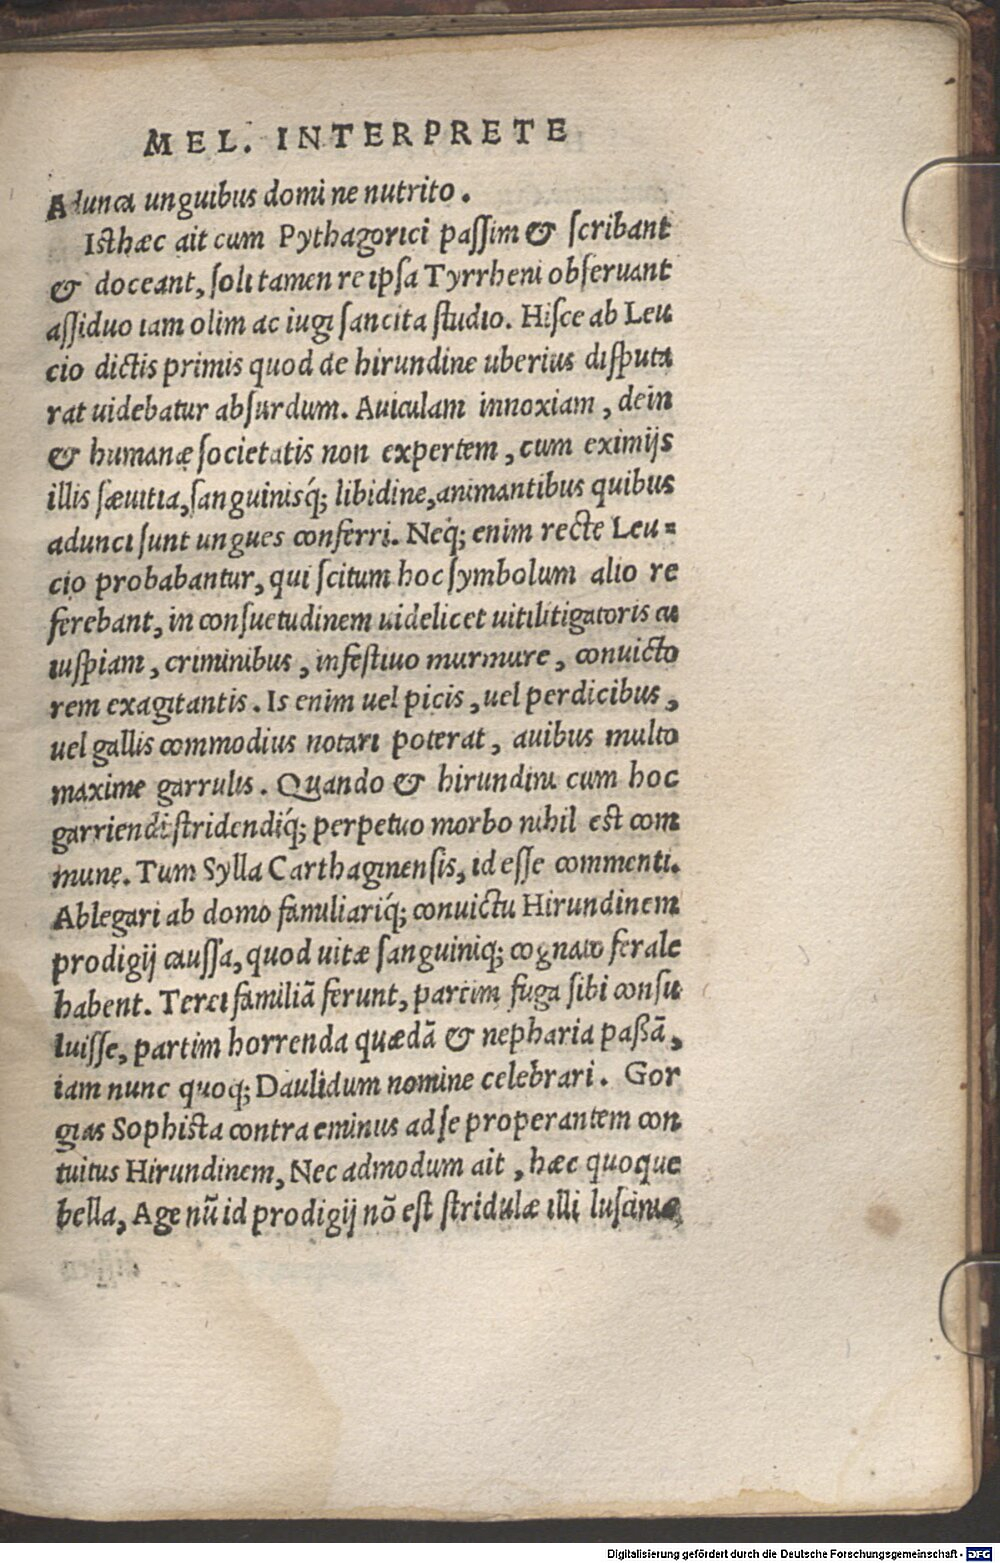 MEL. INTERPRETE
Adunca unguibus domi ne nutrito.
Isthæc ait cum Pythagorici paſſim & ſcribant
& doceant, ſoli tamen re ipſa Tyrrheni obſeruant
aſſiduo iam olim ac iugi ſancita ſtudio. Hiſce ab Leu
cio dictis primis quod de hirundine uberius diſputa
rat uidebatur abſurdum. Auiculam innoxiam, dein
& humanæ ſocietatis non expertem, cum eximijs
illis ſæuitia, ſanguinisq́; libidine, animantibus quibus
adunci ſunt ungues conferri. Neq́; enim recte Leu=
cio probabantur, qui ſcitum hoc ſymbolum alio re
ferebant, in conſuetudinem uidelicet uitilitigatoris cu
iuſpiam, criminibus, infeſtiuo murmure, conuicto
rem exagitantis. Is enim uel picis, uel perdicibus,
uel gallis commodius notari poterat, auibus multo
maxime garrulis. Quando & hirundini cum hoc
garriendi ſtridendiq́; perpetuo morbo nihil est com
mune. Tum Sylla Carthaginenſis, id eſſe commenti.
Ablegari ab domo familiariq́; conuictu Hirundinem
prodigij cauſſa, quod uitæ ſanguiniq; cognato ferale
habent. Terei familiā ferunt, partim fuga ſibi conſu
luiſſe, partim horrenda quædā & nepharia paßā,
iam nunc quoq; Daulidum nomine celebrari. Gor
gias Sophista contra eminus ad ſe properantem con
tuitus Hirundinem, Nec admodum ait, hæc quoque
bella, Age nū id prodigij nō eſt ſtridulæ illi luſciniæ
Digitalisierung gefördert durch die Deutsche Forschungsgemeinschaft - DFG